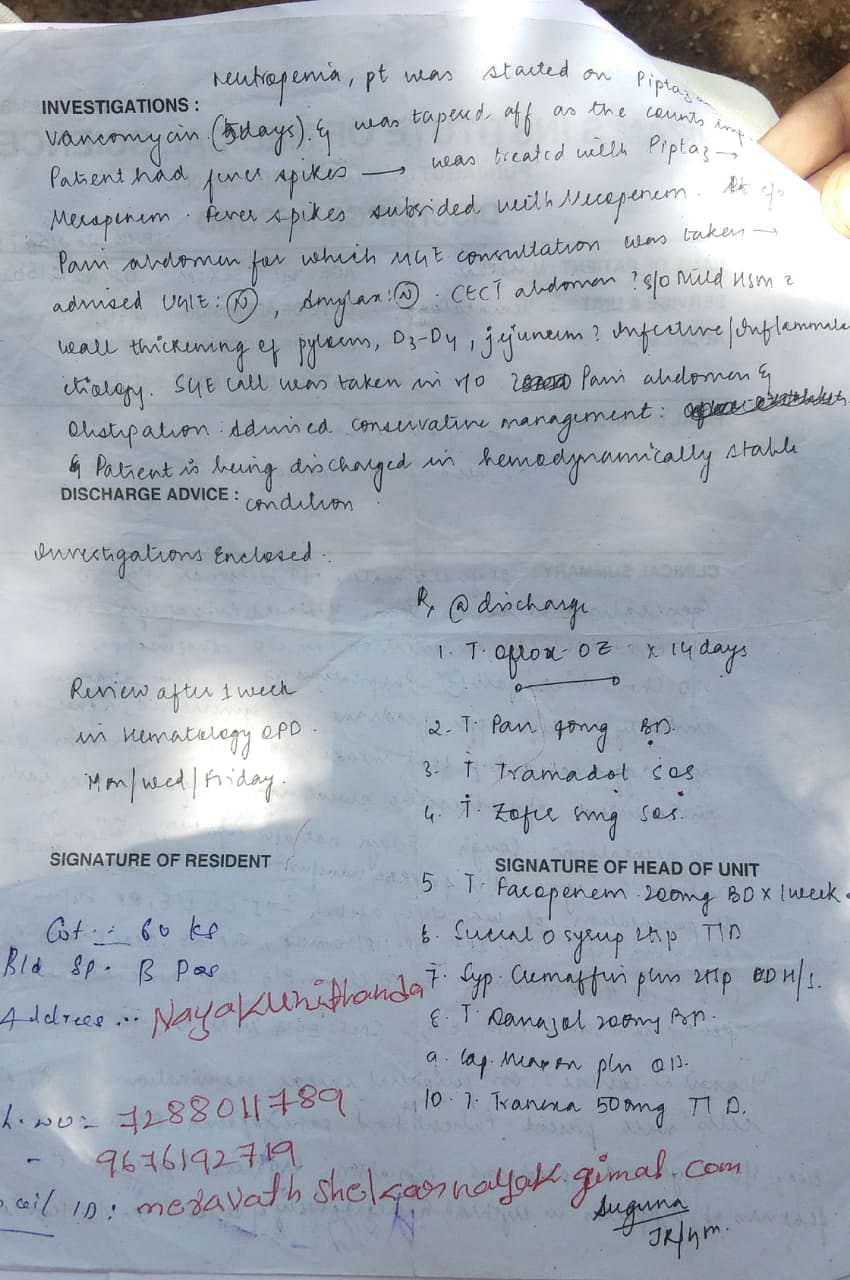 neutropenia, pt was started on Piptaz
INVESTIGATIONS :
Vancomycin (5days). & was tapered off as the counts imp
Patient had fever spikes → was treated with Piptaz →
Meropenem. Fever spikes subsided with Meropenem. Pt c/o
Pain abdomen for which MGE consultation was taken →
advised UGIE: (N), Amylase: (N). CECT abdomen ? s/o Mild HSM c
wall thickening of pylorus, D3-D4, jejunum ? Infective/Inflammato
etiology. SGE call was taken in v/o Pain abdomen &
Obstipation. Advised conservative management:
& Patient is being discharged in hemodynamically stable
DISCHARGE ADVICE : condition
Investigations Enclosed.
Rx @ discharge
1. T. Oflox-OZ x 14 days
Review after 1 week
in Hematology OPD.
Mon/Wed/Friday.
2. T. Pan 40mg BD.
3. T Tramadol sos
4. T. Zofer 8mg sos.
SIGNATURE OF RESIDENT
SIGNATURE OF HEAD OF UNIT
5 T. Faropenem 200mg BD x 1week.
6. Sucral O syrup 2tsp TID
7. Syp. Cremaffin plus 2tsp OD H/S.
8. T. Danazol 200mg BD.
9. Cap. plus OD.
10. T. Tranexa 500mg TID.
60 kg
Bld Gp. B Pos
Address .. Nayakunithanda
h. no = 7288011789
- 9676192719
ail ID: meravath shekarnayak gimal.com
Suguna
JR/GM.